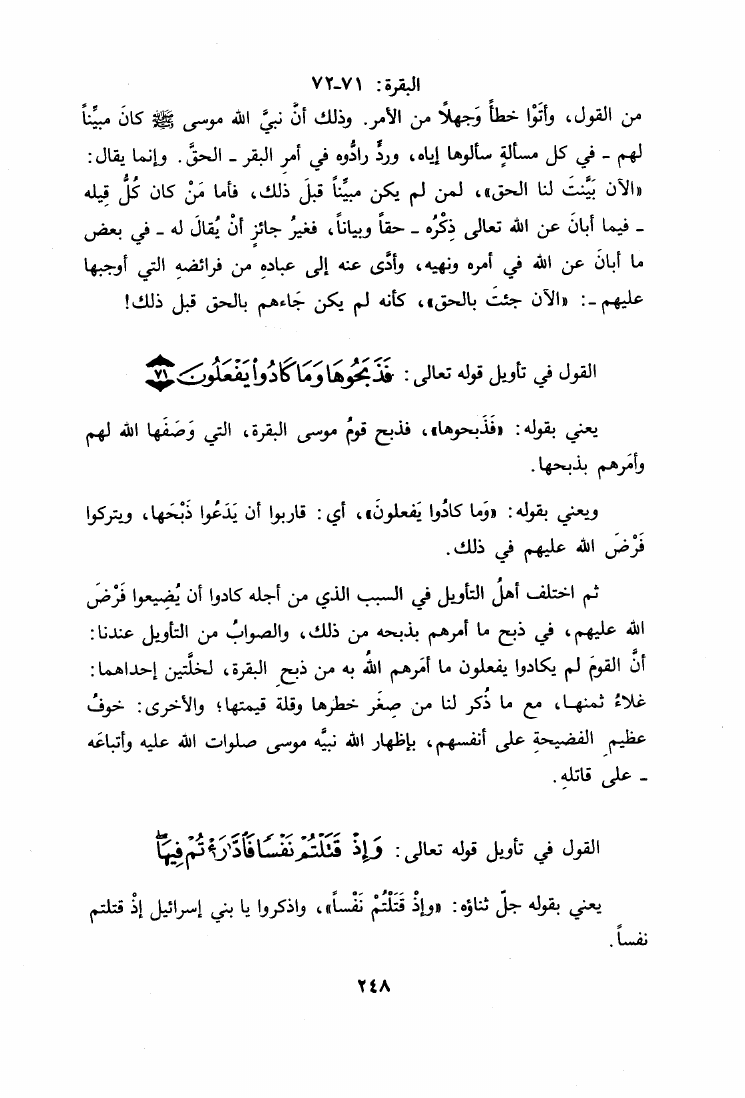 البقرة: ٧١-٧٢
من القول، وأتَوْا خطأً وَجهلًا من الأمر. وذلك أنَّ نبيَّ الله موسى ﷺ كانَ مبيِّناً
لهم - في كل مسألةٍ سألوها إياه، وردٍّ رادُّوه في أمرِ البقر - الحقَّ. وإنما يقال:
«الآن بَيَّنتَ لنا الحق»، لمن لم يكن مبيِّناً قبلَ ذلك، فأما مَنْ كان كُلُّ قِيله
- فيما أبانَ عن الله تعالى ذِكْرُه - حقاً وبياناً، فغيرُ جائزٍ أنْ يُقالَ له - في بعض
ما أبانَ عن الله في أمره ونهيه، وأدَّى عنه إلى عبادهِ من فرائضهِ التي أوجبها
عليهم -: «الآن جئتَ بالحق»، كأنه لم يكن جَاءهم بالحق قبل ذلك!
القول في تأويل قوله تعالى: فَذَبَحُوهَا وَمَا كَادُواْ يَفْعَلُونَ ٧١
يعني بقوله: «فَذَبحوها»، فذبح قومُ موسى البقرة، التي وَصَفَها الله لهم
وأمَرهم بذبحها.
ويعني بقوله: «وَما كادُوا يَفعلونَ»، أي: قاربوا أن يَدَعُوا ذَبْحَها، ويتركوا
فَرْضَ الله عليهم في ذلك.
ثم اختلف أهلُ التأويل في السبب الذي من أجله كادوا أن يُضِيعوا فَرْضَ
الله عليهم، في ذبح ما أمرهم بذبحه من ذلك، والصوابُ من التأويل عندنا:
أنَّ القومَ لم يكادوا يفعلون ما أمَرهم اللهُ به من ذبحِ البقرة، لخلَّتين إحداهما:
غلاءُ ثمنهـا، مع ما ذُكر لنا من صِغَر خطرها وقلة قيمتها؛ والأخرى: خوفُ
عظيمِ الفضيحةِ على أنفسهم، بإظهار الله نبيَّه موسى صلوات الله عليه وأتباعَه
- على قاتلهِ.
القول في تأويل قوله تعالى: وَإِذْ قَتَلْتُمْ نَفْسًا فَٱدَّٰرَْٰٔتُمْ فِيهَا
يعني بقوله جلّ ثناؤه: «وإذْ قَتَلْتُمْ نَفْساً»، واذكروا يا بني إسرائيل إذْ قتلتم
نفساً.
٢٤٨